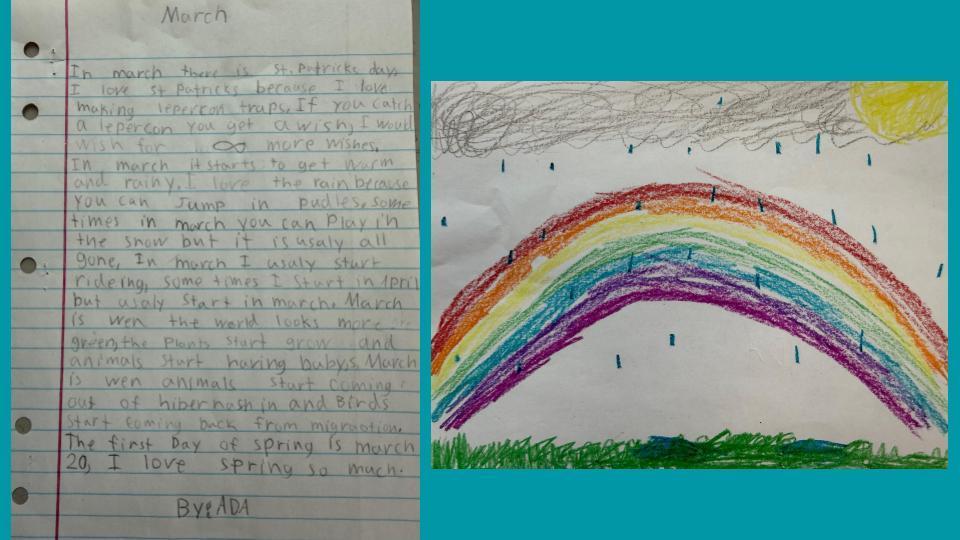 March
In march there is st. Patricks day,
I love st Patricks because I love
making lepercon traps. If you catch
a lepercon you get a wish, I would
wish for ∞ more wishes.
In march it starts to get warm
and rainy. I love the rain because
you can Jump in pudles, some
times in march you can Play in
the snow but it is usaly all
gone, In march I usaly start
rideing, some times I start in April
but usaly start in march. March
is wen the world looks more
green, the Plants start grow and
animals start having babys. March
is wen animals start coming
out of hibernashin and Birds
start coming back from migraotion.
The first Day of spring is march
20, I love spring so much.
By: ADA